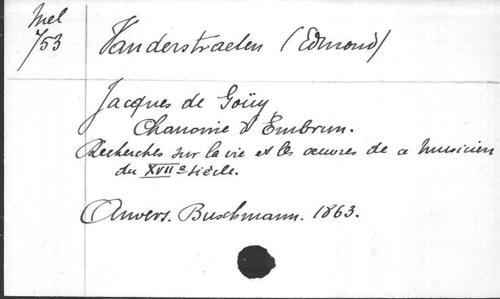 Mel
753
Vanderstraeten (Edmond)
Jacques de Goüy
Chanoine d'Embrun.
Recherches sur la vie et les œuvres de ce musicien
du XVIIe siècle.
Anvers. Buschmann. 1863.